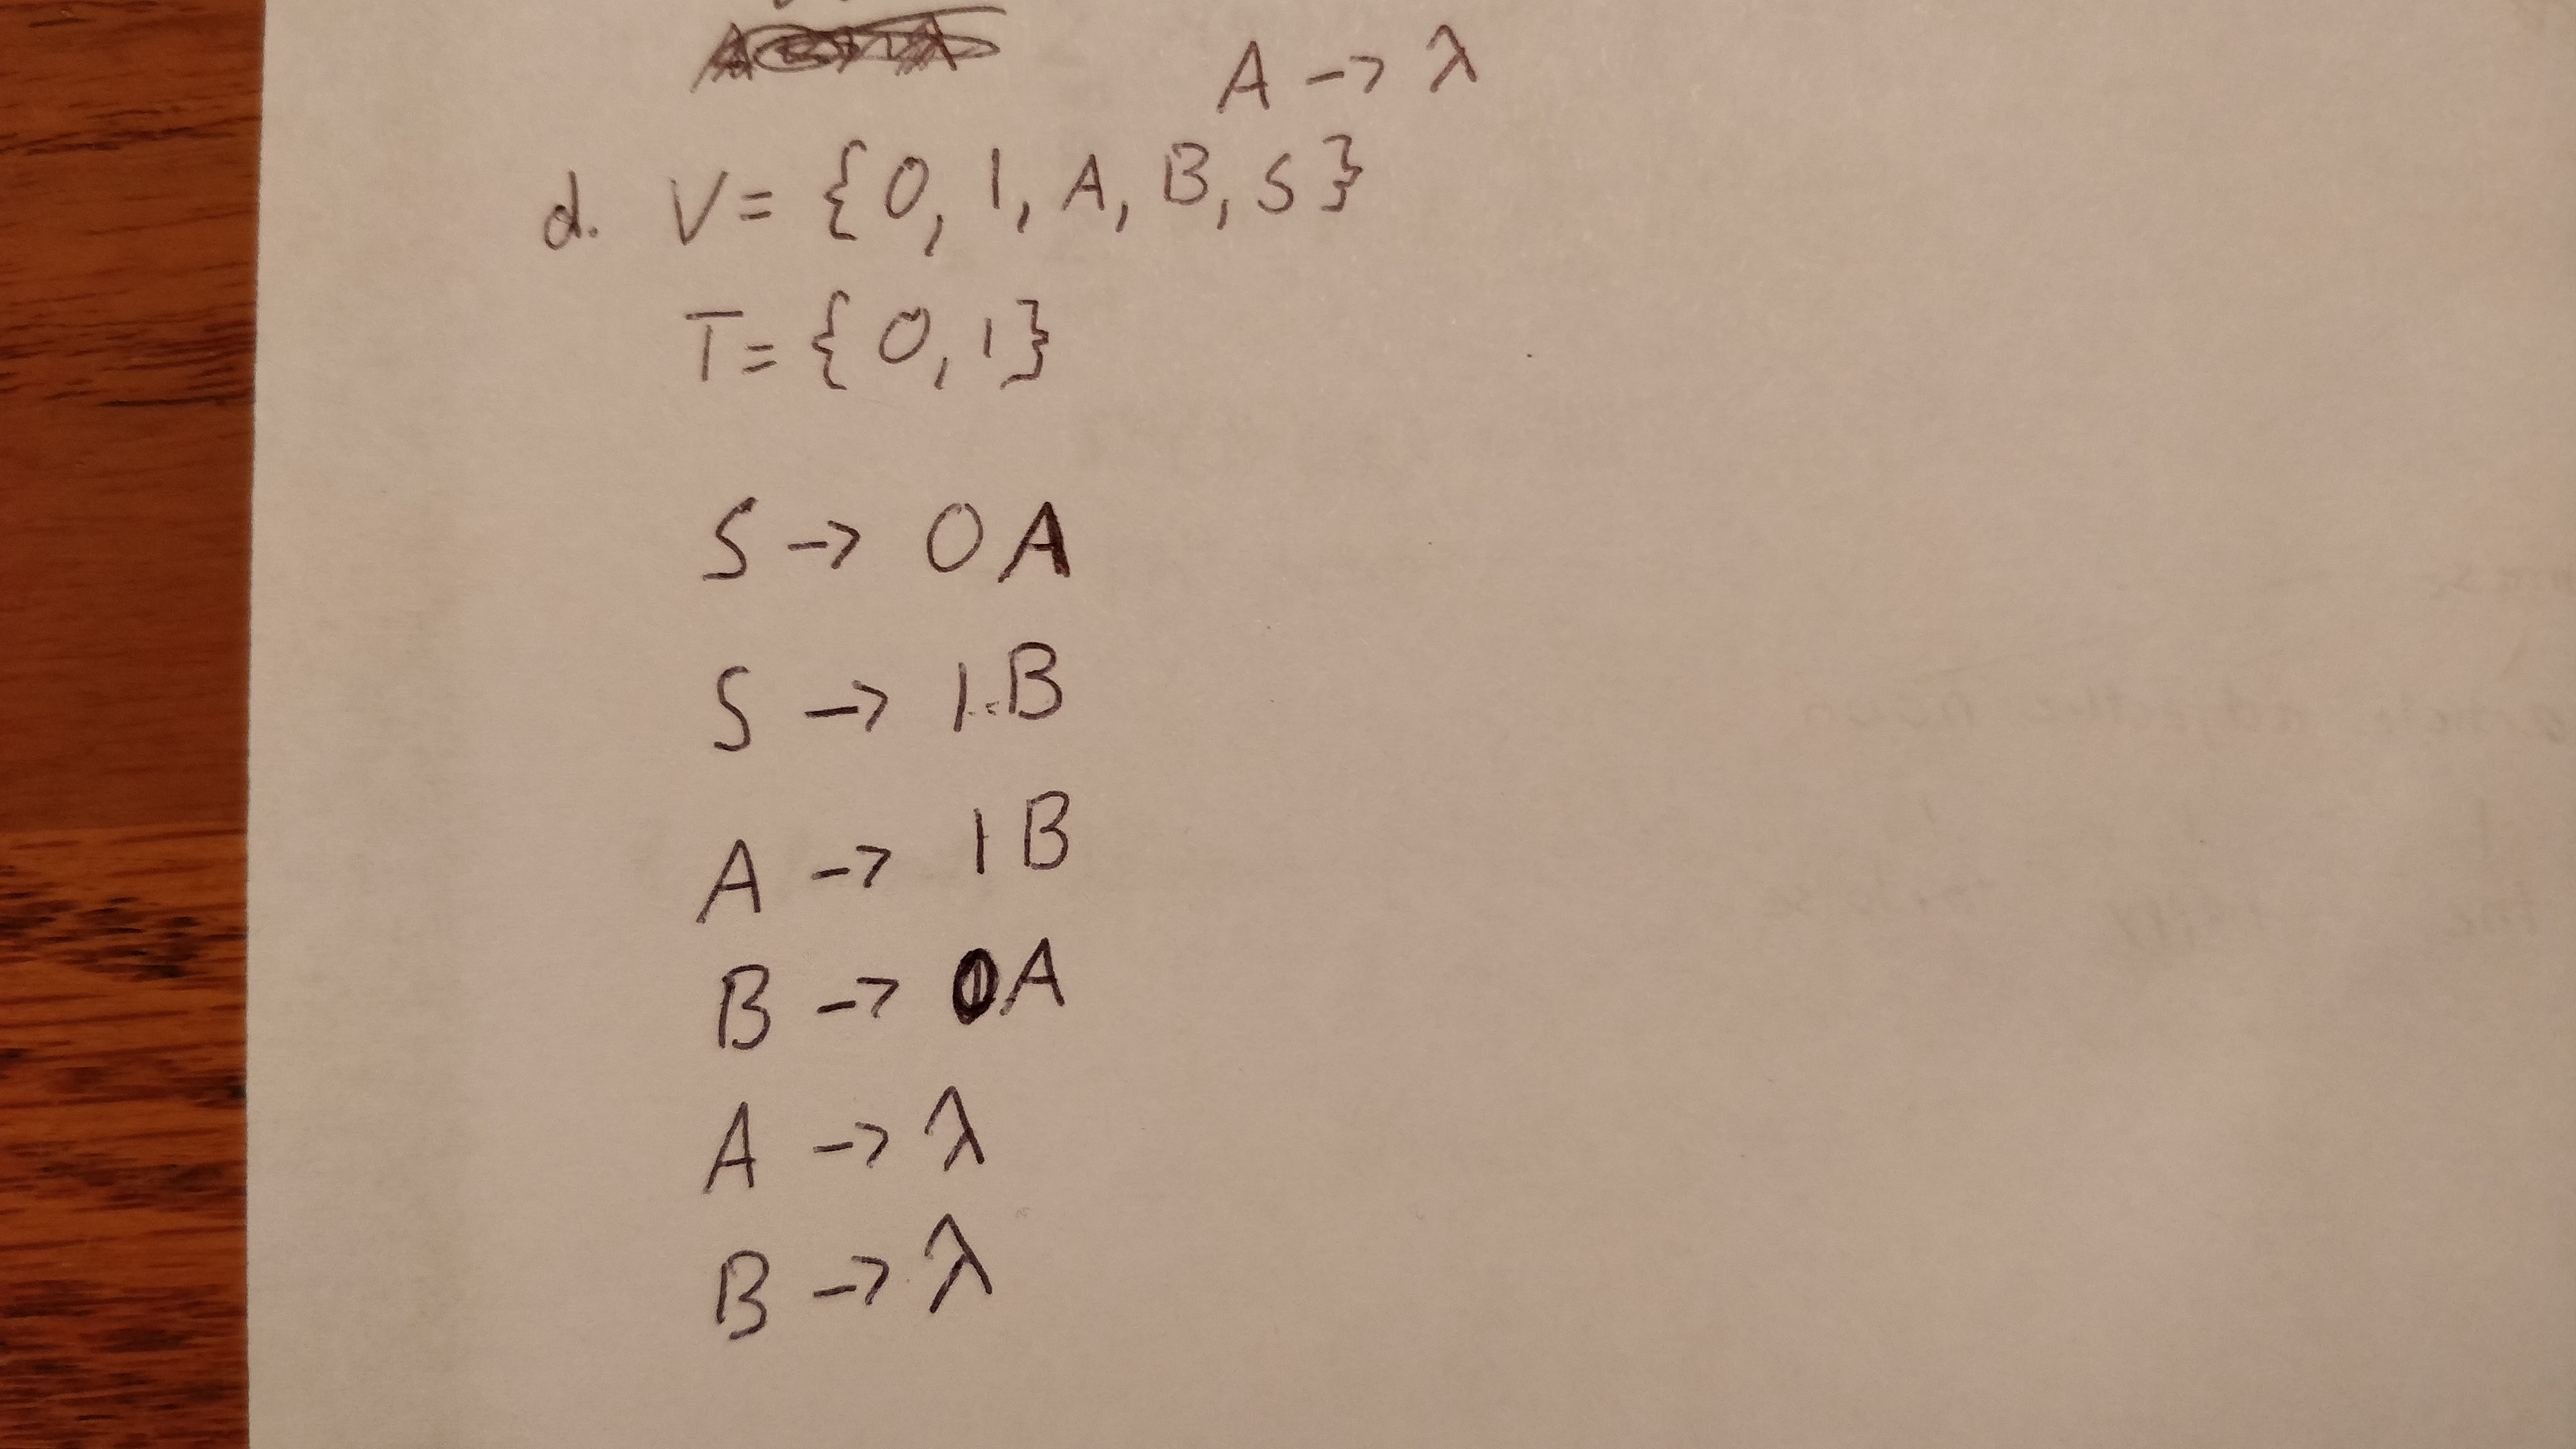 A -> λ
d. V = {0, 1, A, B, S}
T = {0, 1}
S -> 0A
S -> 1B
A -> 1B
B -> 0A
A -> λ
B -> λ